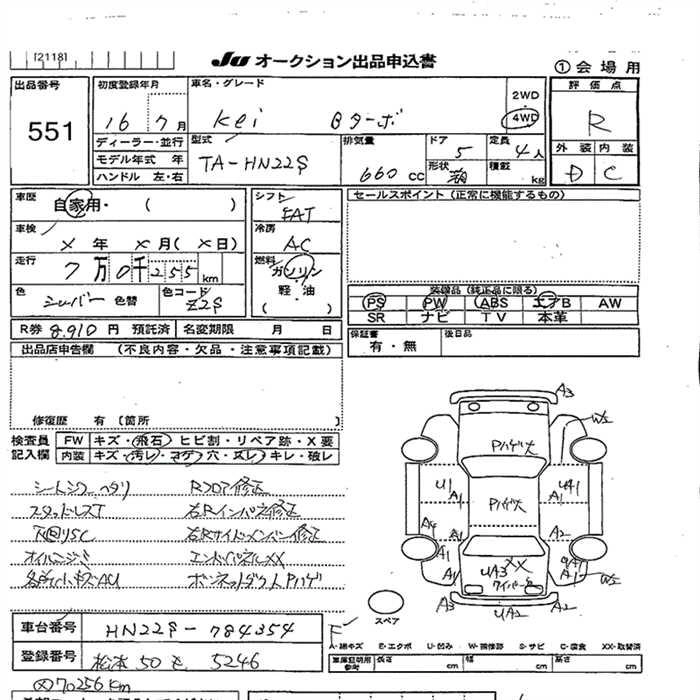 [2118]
JU オークション出品申込書
① 会場用
出品番号
551
初度登録年月
16 7月
車名・グレード
Kei Bターボ
2WD
4WD
評価点
R
外装 内装
D C
ディーラー・並行
モデル年式 年
ハンドル 左・右
型式
TA-HN22S
排気量
660 cc
ドア
5
形状
定員
4人
積載
kg
車歴
自家用・( )
車検
× 年 × 月( × 日)
走行
7万0千255 km
色
シルバー
色替
色コード
Z2S
シフト
FAT
冷房
AC
燃料
ガソリン
軽・油
( )
セールスポイント(正常に機能するもの)
装備品(純正品に限る)
PS PW ABS エアB AW
SR ナビ TV 本革
R券 8,910 円 預託済 名変期限 月 日
保証書
有・無
後日品
出品店申告欄 (不良内容・欠品・注意事項記載)
修復歴 有(箇所 )
検査員
記入欄
FW キズ・飛石・ヒビ割・リペア跡・X要
内装 キズ・汚レ・コゲ・穴・スレ・キレ・破レ
シートシワ ヘタリ
RフロアI修正
スタッドレスT
右Rインパネ修正
下回りSC
右Rサイドメンバー修正
エンドパネルXX
各所小キズAU
ボンネットダクトPハゲ
A3
W2
Pハゲ大
U1
A1
UA1
A1
Pハゲ大
A4
A1
A2
A1
A1
UA3
XX
ワイパー
A1
W2
A3
UA2
A2
スペア
F
A・線キズ E・エクボ U・凹み W・補修跡 S・サビ C・腐食 XX・取替済
車庫証明用
参考
長さ cm 幅 cm 高さ cm
車台番号
HN22S-784354
登録番号
松本 50 5246
70256km